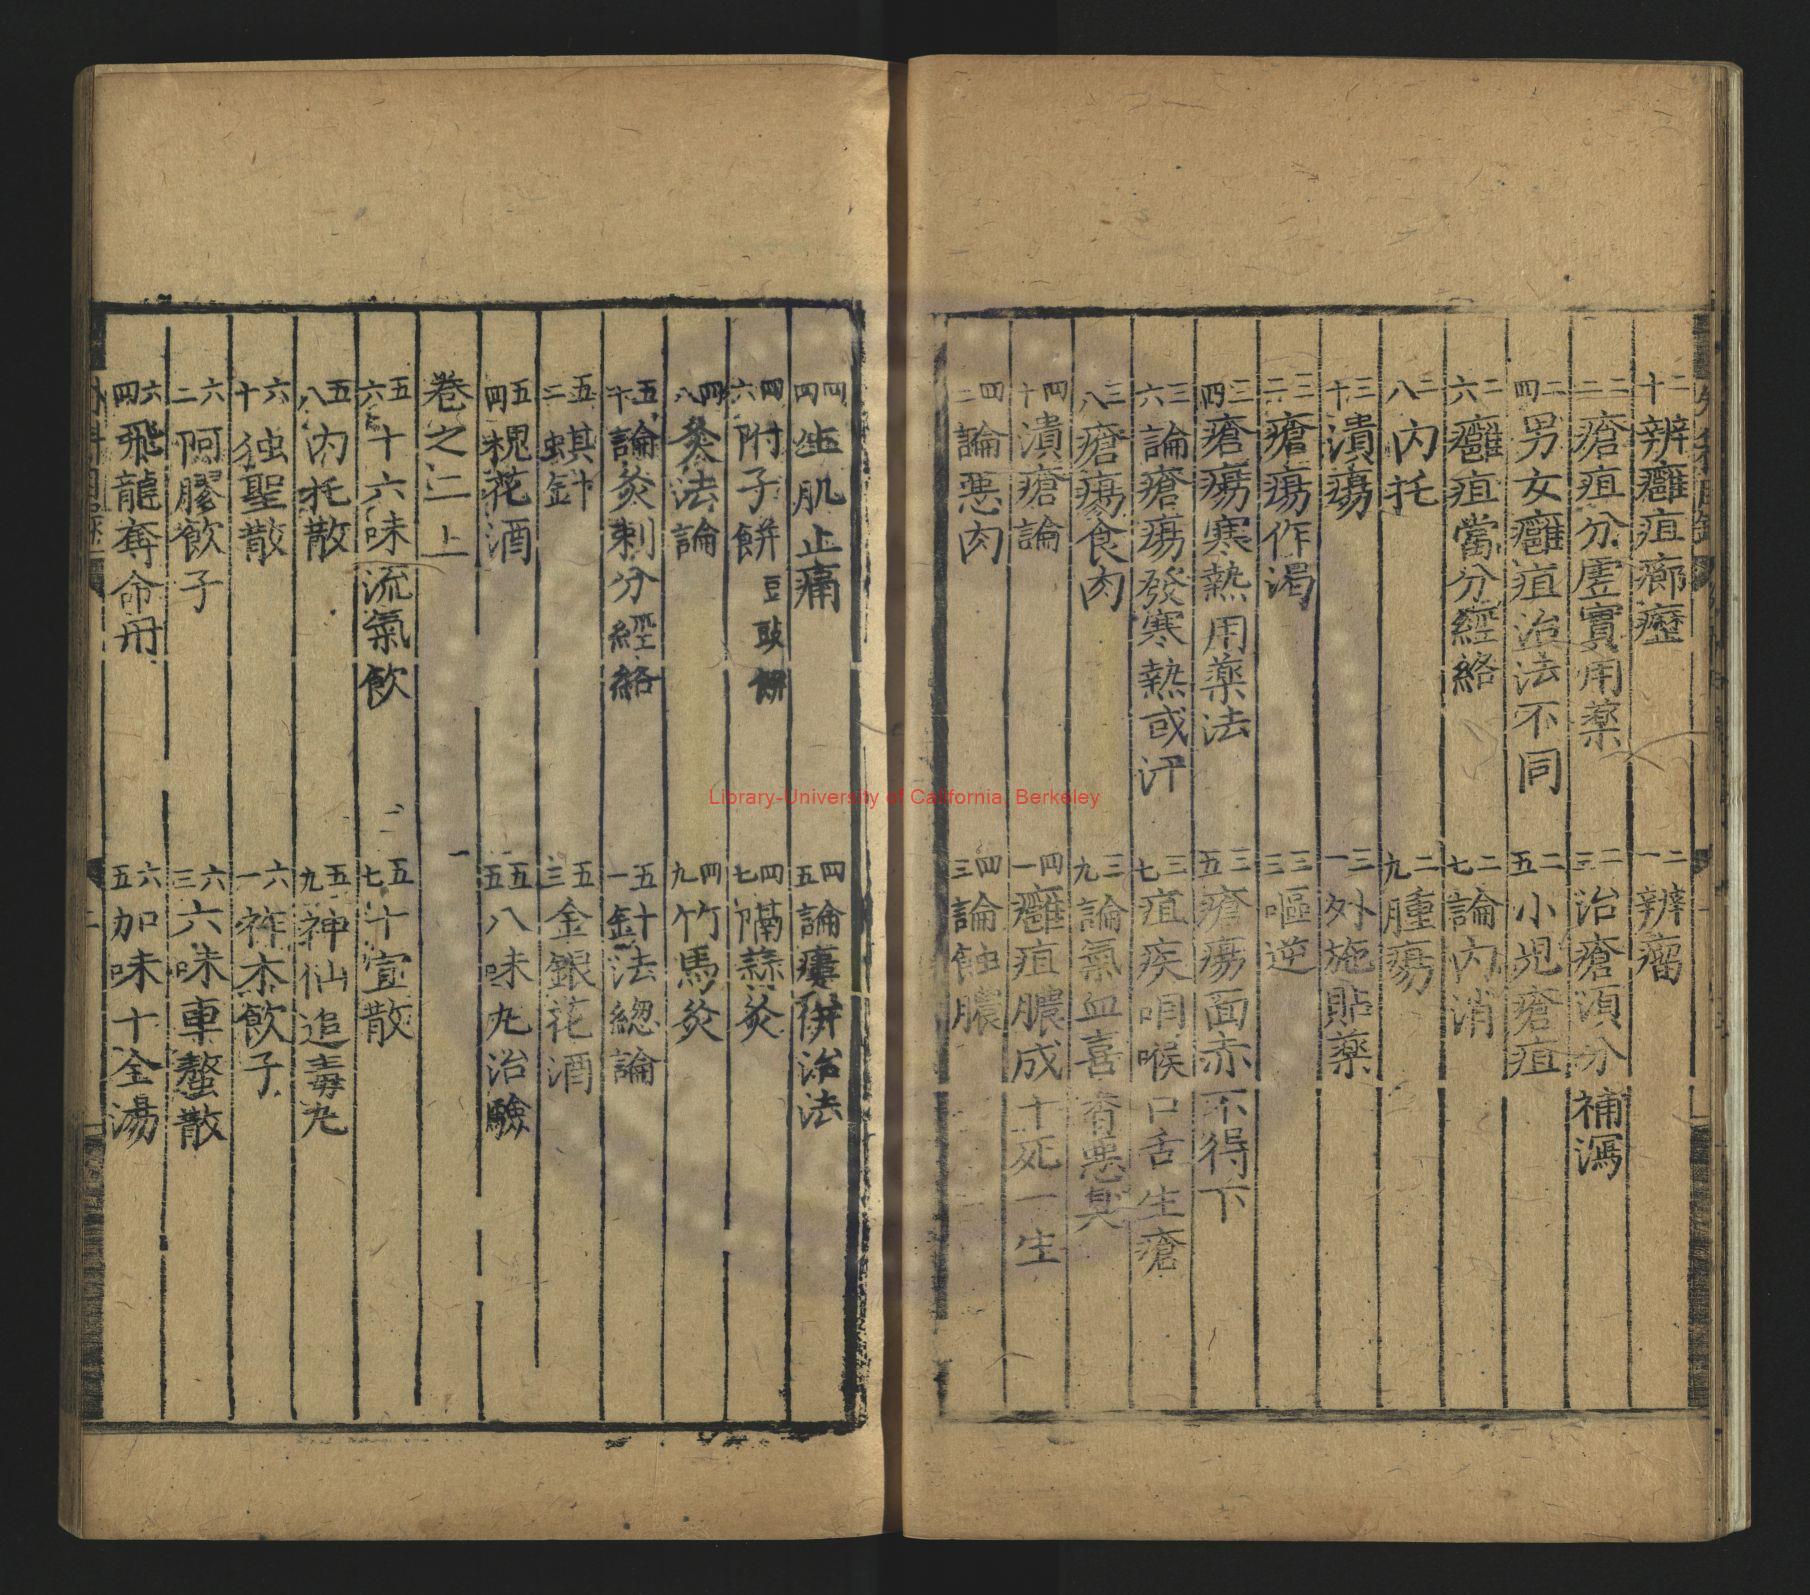 二十辨癰疽瘰癧 二一辨瘤
二二瘡疽分虛實用藥 二三治瘡須分補瀉
二四男女癰疽治法不同 二五小児瘡疽
二六癰疽當分經絡 二七論内消
二八内托 二九腫瘍
三十潰瘍 三一外施貼藥
三二瘡瘍作渴 三三嘔逆
三四瘡瘍寒熱用藥法 三五瘡瘍面赤不得下
三六論瘡瘍發寒熱或汗 三七疽疾咽喉口舌生瘡
三八瘡瘍食肉 三九論氣血喜香惡臭
四十潰瘡論 四一癰疽膿成十死一生
四二論惡肉 四三論蝕膿
四四生肌止痛 四五論瘻併治法
四六附子餅 豆豉餅 四七隔蒜灸
四八灸法論 四九竹馬灸
五十論灸刺分經絡 五一針法總論
五二蜞針 五三金銀花酒
五四槐花酒 五五八味丸治驗
卷之二上
五六十六味流氣飲 五七十宣散
五八内托散 五九神仙追毒丸
六十独聖散 六一祥朩飲子
六二阿膠飲子 六三六味車螯散
六四飛龍奪命丹 六五加味十全湯
Library-University of California, Berkeley